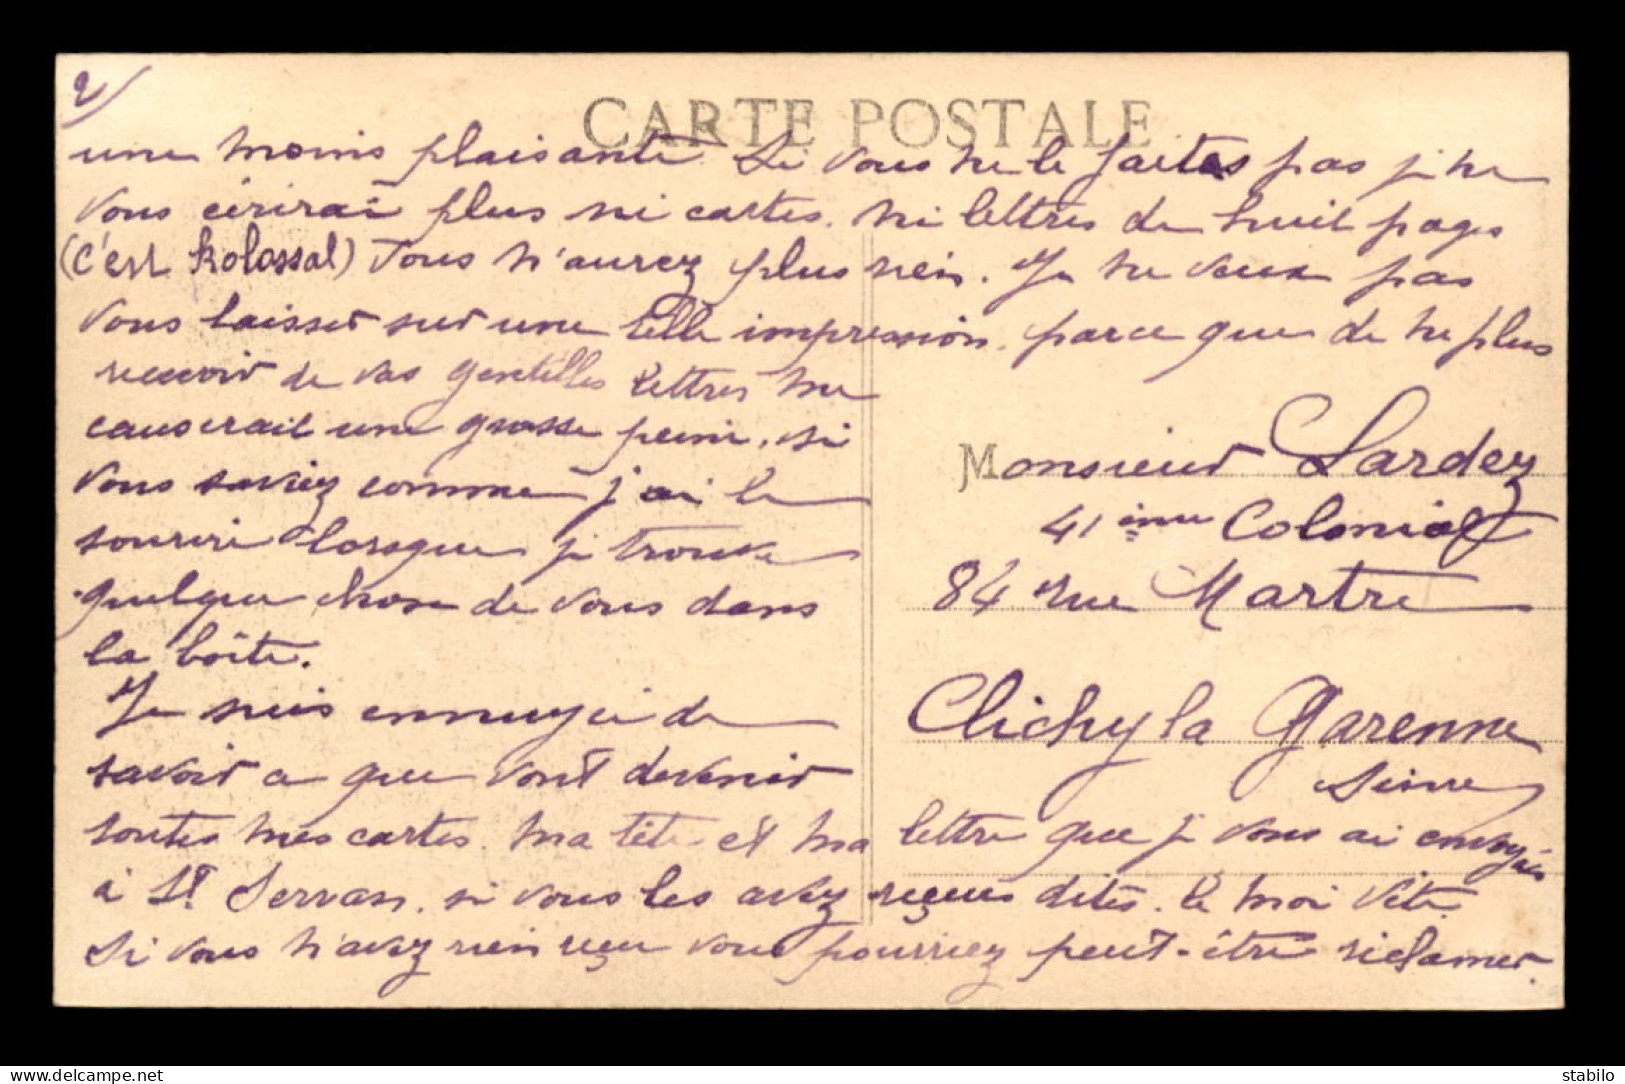 2/
CARTE POSTALE
une moins plaisante. Si vous ne le faites pas je ne
vous écrirai plus ni cartes. ni lettres de huit pages
(c'est kolossal) Vous n'aurez plus rien. Je ne veux pas
vous laisser sur une telle impression. parce que de ne plus
recevoir de vos gentilles lettres me
causerait une grosse peine. si
vous saviez comme j'ai le
sourire lorsque je trouve
quelque chose de vous dans
la boîte.
Je suis ennuyée de
savoir ce que vont devenir
toutes mes cartes. ma tête et ma lettre que je vous ai envoyées
à St Servan. si vous les avez reçues dites. le moi vite.
Si vous n'avez rien reçu vous pourriez peut-être réclamer.
Monsieur Lardez
41 ième Colonial
84 rue Martre
Clichy la Garenne
Seine
Delcampe.net
stabilo